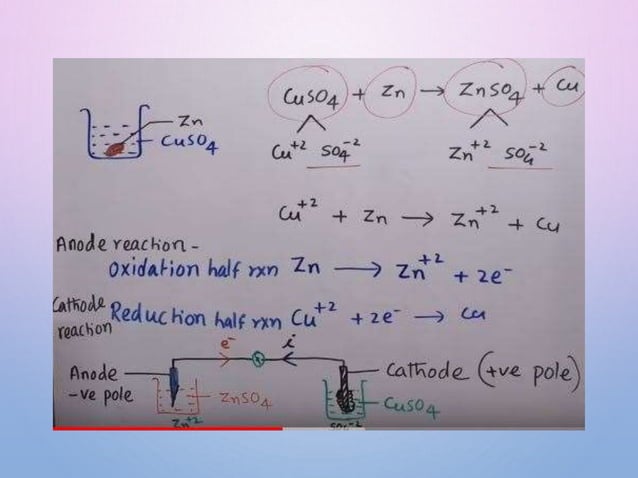 CuSO4 + Zn → ZnSO4 + Cu
Zn
CuSO4
Cu+2 SO4-2
Zn+2 SO4-2
Cu+2 + Zn → Zn+2 + Cu
Anode reaction -
oxidation half rxn Zn → Zn+2 + 2e-
Cathode reaction
Reduction half rxn Cu+2 + 2e- → Cu
e-
i
Anode
-ve pole
Cathode (+ve pole)
ZnSO4
CuSO4
Zn+2
SO4-2